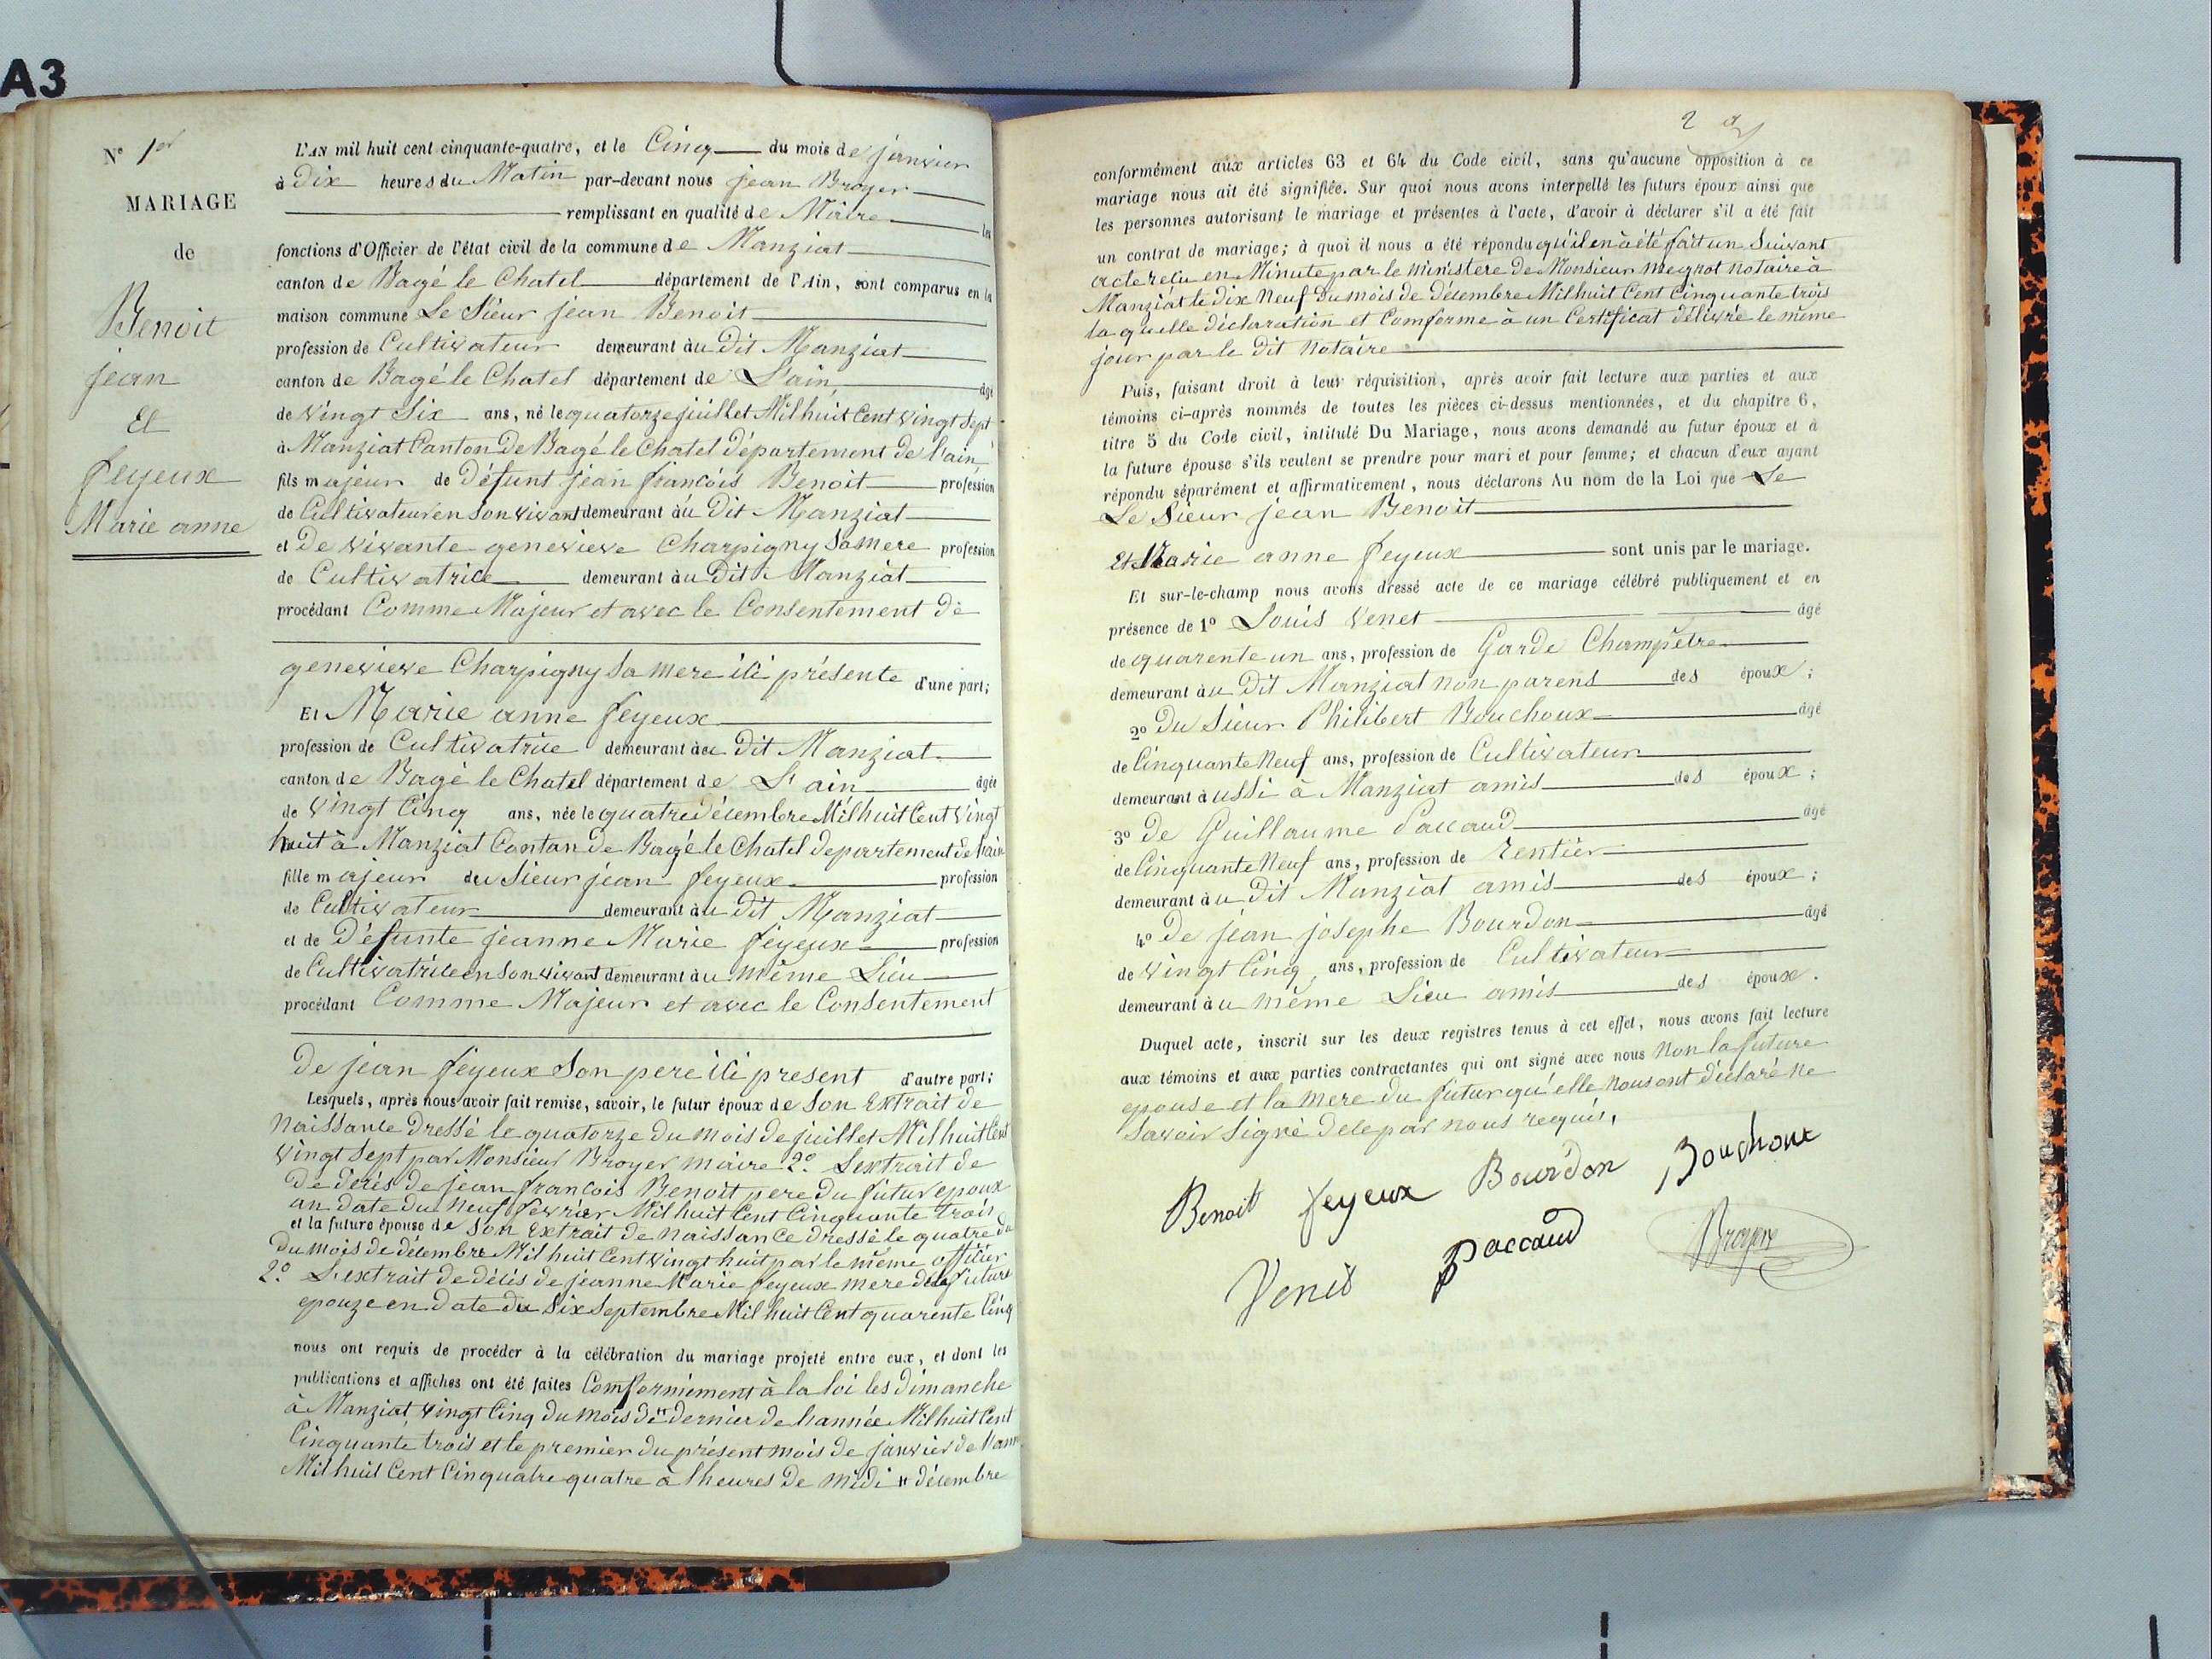 A3
N° 1er
MARIAGE
de
Benoit
jean
Et
feyeux
Marie anne
L'AN mil huit cent cinquante-quatre, et le Cinq du mois de janvier
à Dix heures du Matin par-devant nous jean Broyer
remplissant en qualité de Maire les
fonctions d'Officier de l'état civil de la commune de Manziat
canton de Bagé le Chatel département de l'Ain, sont comparus en la
maison commune Le Sieur jean Benoit
profession de Cultivateur demeurant àu Dit Manziat
canton de Bagé le Chatel département de L'ain âgé
de vingt Six ans, né le quatorze juillet Mil huit Cent vingt Sept
à Manziat Canton De Bagé le Chatel Département De l'ain
fils majeur de Défunt jean françois Benoit profession
de Cultivateur en Son vivant demeurant àu Dit Manziat
et De vivante genevieve Charpigny Sa mere profession
de Cultivatrice demeurant àu Dit Manziat
procédant Comme Majeur et avec le Consentement De
genevieve Charpigny Sa mere ici présente d'une part;
Et Marie anne feyeux
profession de Cultivatrice demeurant àu Dit Manziat
canton de Bagé le Chatel département de L'ain âgée
de vingt Cinq ans, née le quatre Décembre Mil huit Cent vingt
huit à Manziat Canton De Bagé le Chatel departement de l'ain
fille majeur du Sieur jean feyeux profession
de Cultivateur demeurant àu Dit Manziat
et de Défunte jeanne Marie feyeux profession
de Cultivatrice en Son vivant demeurant àu même Lieu
procédant Comme Majeur et avec le Consentement
De jean feyeux Son pere ici present d'autre part;
Lesquels, après nous avoir fait remise, savoir, le futur époux de Son Extrait de
Naissance Dressé le quatorze Du mois De juillet Mil huit Cent
vingt Sept par Monsieur Broyer maire 2° L'extrait de
De décés de jean françois Benoit pere Du futur epoux
an date du Neuf fevrier Mil huit Cent Cinquante trois
et la future épouse de Son Extrait de Naissance Dressé le quatre du
Du mois de décembre Mil huit Cent vingt huit par le même officier
2° L'extrait de décés de jeanne Marie feyeux mere de la future
epouze en Date du Six Septembre Mil huit Cent quarente Cinq
nous ont requis de procéder à la célébration du mariage projeté entre eux, et dont les
publications et affiches ont été faites Comformément à la loi les Dimanche
à Manziat vingt Cinq Du mois De " dernier de l'année Mil huit Cent
Cinquante trois et le premier Du présent mois de janvier de l'ann
Mil huit Cent Cinquatre quatre à lheures De midi " décembre
2
conformément aux articles 63 et 64 du Code civil, sans qu'aucune opposition à ce
mariage nous ait été signifiée. Sur quoi nous avons interpellé les futurs époux ainsi que
les personnes autorisant le mariage et présentes à l'acte, d'avoir à déclarer s'il a été fait
un contrat de mariage; à quoi il nous a été répondu qu'il en à été fait un Suivant
acte reçu en Minute par le ministere De Monsieur notaire à
Manziat le dix Neuf Du mois de Décembre Mil huit Cent Cinquante trois
la quelle déclaration et Comforme à un Certificat délivré le même
jour par le Dit Notaire
Puis, faisant droit à leur réquisition, après avoir fait lecture aux parties et aux
témoins ci-après nommés de toutes les pièces ci-dessus mentionnées, et du chapitre 6,
titre 5 du Code civil, intitulé Du Mariage, nous avons demandé au futur époux et à
la future épouse s'ils veulent se prendre pour mari et pour femme; et chacun d'eux ayant
répondu séparément et affirmativement, nous déclarons Au nom de la Loi que Le
Le Sieur jean Benoit
Et Marie anne feyeux sont unis par le mariage.
Et sur-le-champ nous avons dressé acte de ce mariage célébré publiquement et en
présence de 1° Louis Venet âgé
de quarente un ans, profession de Garde Champêtre
demeurant àu Dit Manziat non parens des époux;
2° Du Sieur Philibert Bouchoux âgé
de Cinquante Neuf ans, profession de Cultivateur
demeurant àussi à Manziat amis des époux;
3° De Guillaume Paccaud âgé
de Cinquante Neuf ans, profession de Rentier
demeurant àu Dit Manziat amis des époux;
4° De jean josephe Bourdon âgé
de vingt Cinq ans, profession de Cultivateur
demeurant àu même Lieu amis des époux.
Duquel acte, inscrit sur les deux registres tenus à cet effet, nous avons fait lecture
aux témoins et aux parties contractantes qui ont signé avec nous Non la future
epouse et la mere du futur qu'elle Nous ont déclaré Ne
Savoir Signé De ce par nous requis,
Benoit feyeux Bourdon Bouchoux
Venet paccaud Broyer